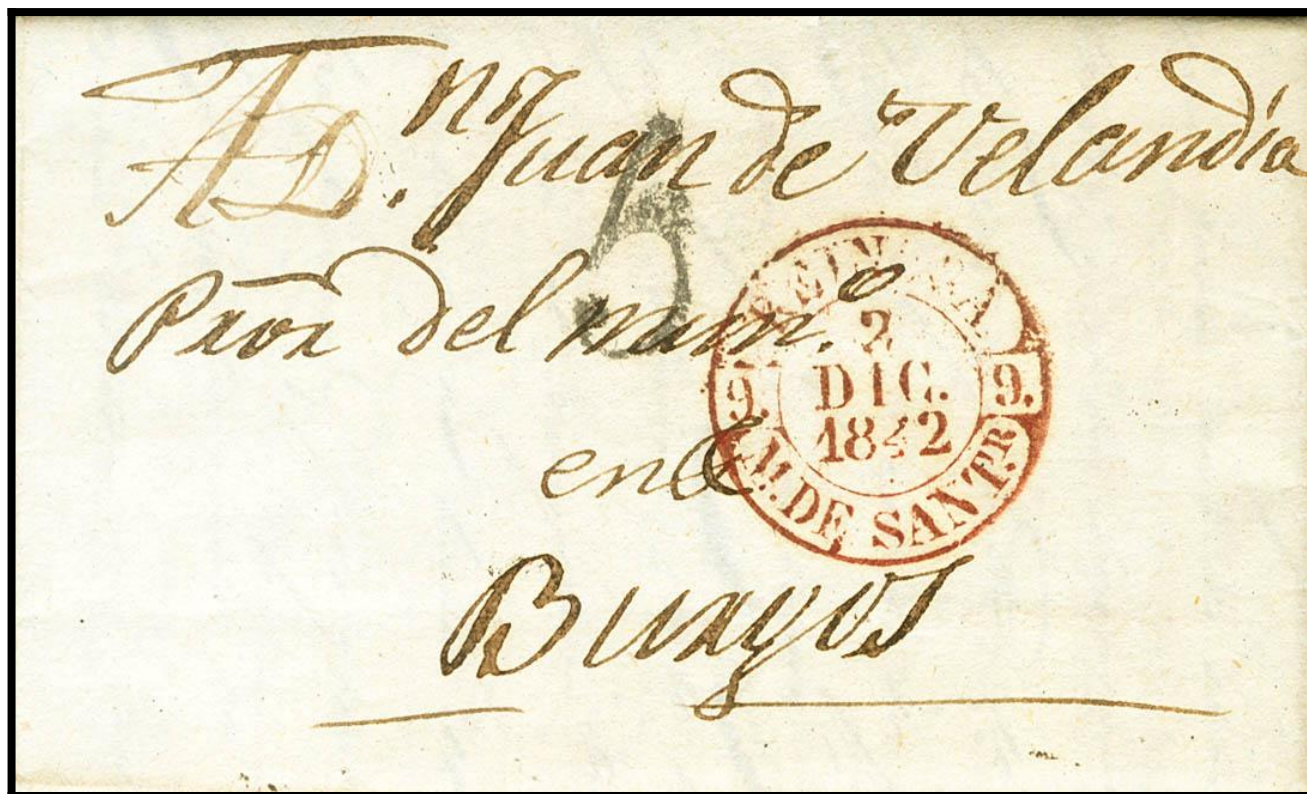 A D.n Juan de Velandia
5
Pror del num.o
en
Burgos
REINOSA
2
DIC.
1842
9. 9.
M. DE SANT.R